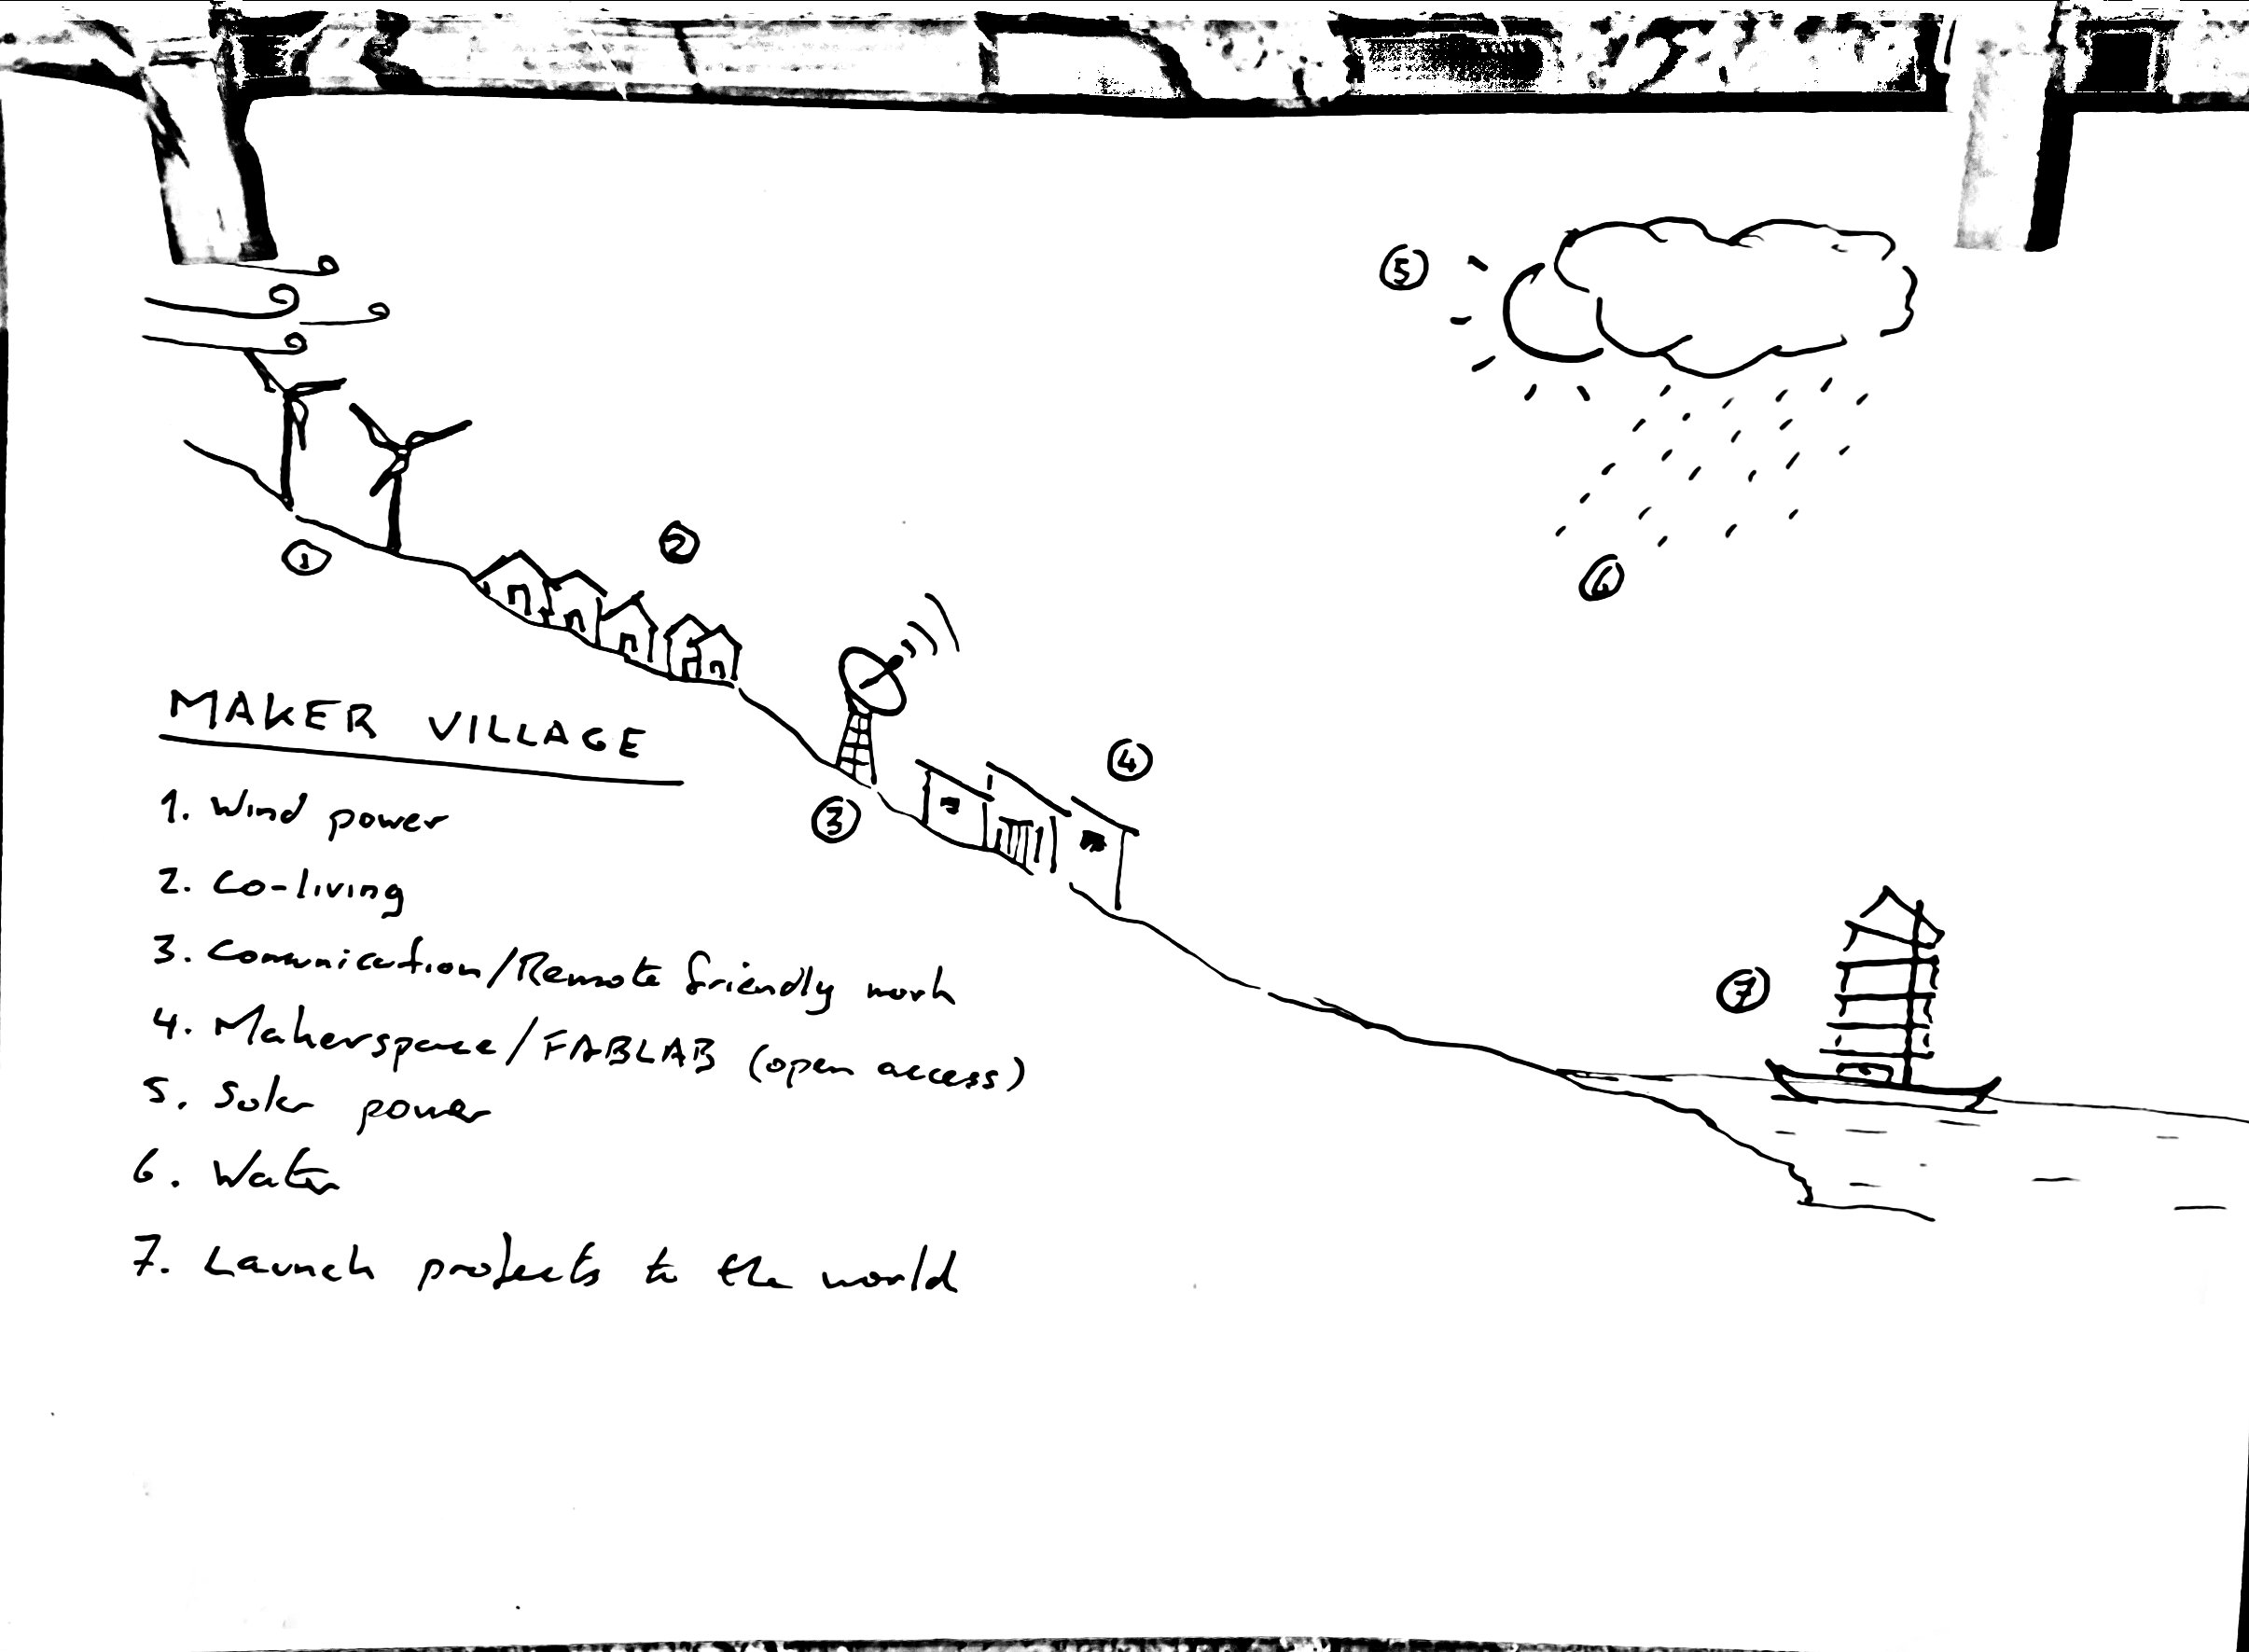 5
2
1
6
MAKER VILLAGE
4
3
1. Wind power
2. Co-living
3. Comunication/Remote friendly work
7
4. Makerspace/FABLAB (open access)
5. Solar power
6. Water
7. Launch projects to the world